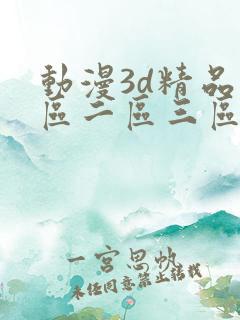 動漫3d精品
區二區三區
一宮思帆
未经同意禁止转载